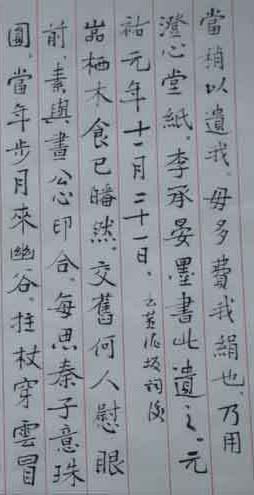 當稍以遺我。毋多費我絹也。乃用
澄心堂紙。李承晏墨書此遺之。元
祐元年十一月二十一日。
嵓栖木食已皤然。交舊何人慰眼
前。素與畫公印合。每思秦子意珠
圓。當年步月來幽谷。拄杖穿雲冒